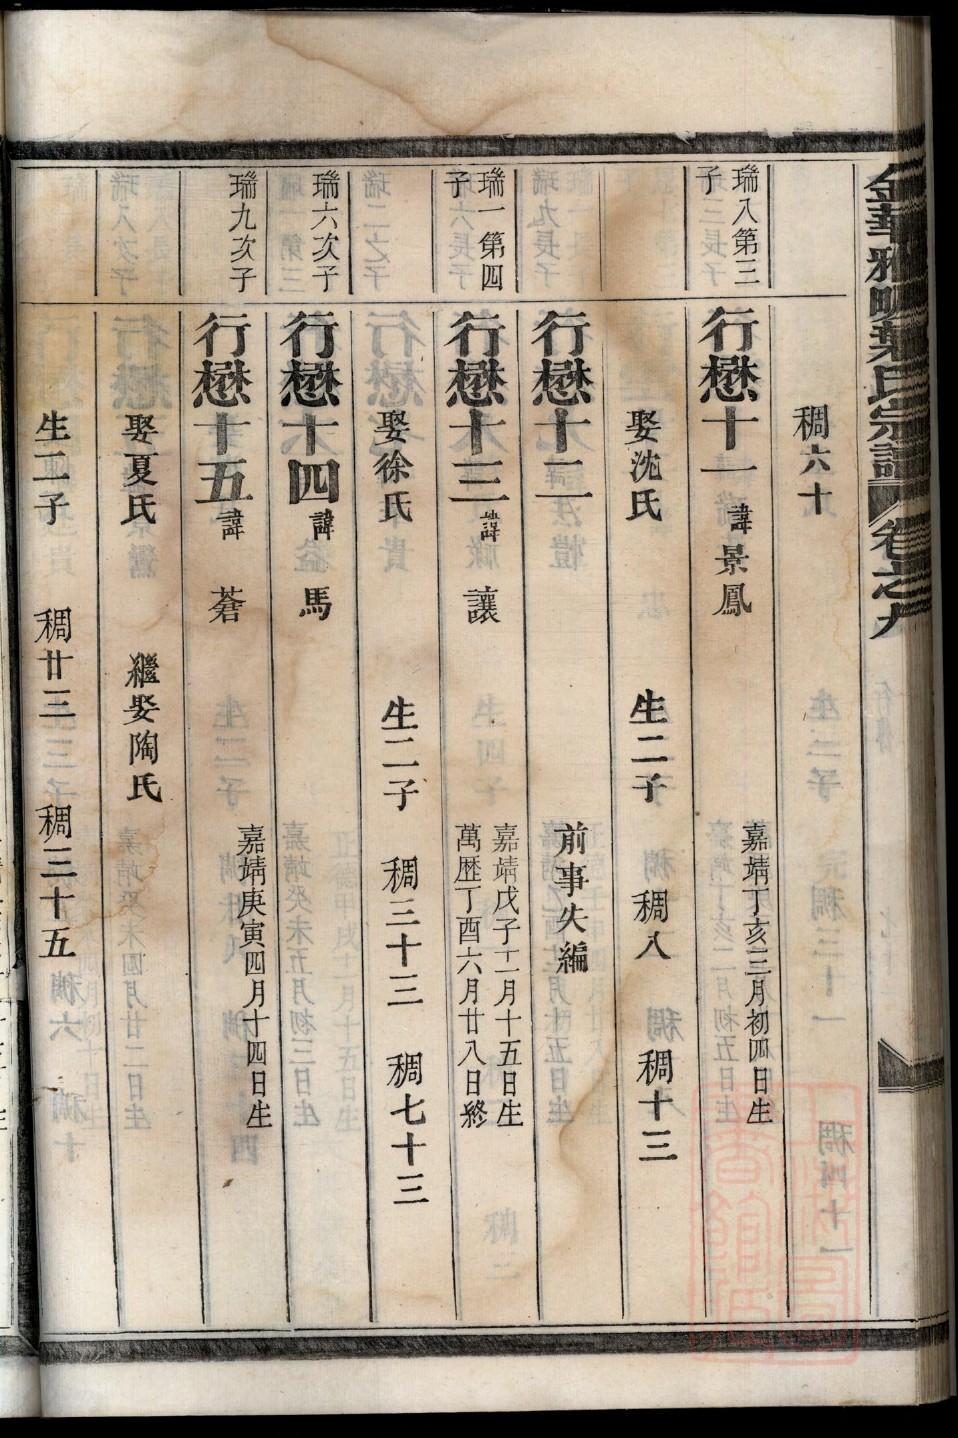 金華雅畈葉氏宗譜 卷之九
稠六十
瑞八第三子
行懋十一 諱景鳳 嘉靖丁亥三月初四日生
娶沈氏 生二子 稠八 稠十三
行懋十二 前事失編
瑞一第四子
行懋十三 諱讓 嘉靖戊子十一月十五日生
萬歷丁酉六月廿八日終
娶徐氏 生二子 稠三十三 稠七十三
瑞六次子
行懋十四 諱馬
瑞九次子
行懋十五 諱蒼 嘉靖庚寅四月十四日生
娶夏氏 繼娶陶氏
生二子 稠廿三 稠三十五